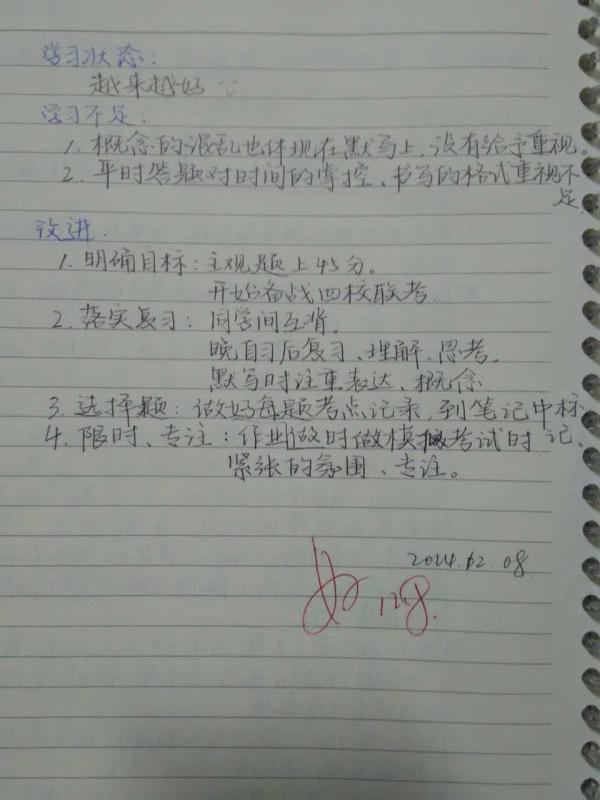 学习状态：
越来越好
学习不足：
1. 概念的混乱也体现在默写上，没有给予重视。
2. 平时答题对时间的掌控、书写的格式重视不
足.
改进：
1. 明确目标：主观题上45分。
开始备战四校联考.
2. 落实复习：同学间互背。
晚自习后复习、理解、思考。
默写时注重表达、概念.
3. 选择题：做好每题考点记录，到笔记中标
4. 限时、专注：作业做时做模拟考试时 记、
紧张的氛围、专注。
2024.12.08.
12.8.